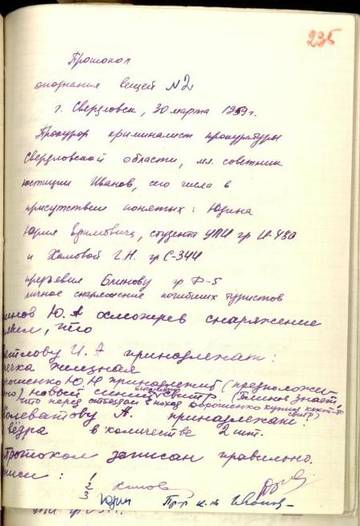 235
Протокол
опознания вещей №2
г. Свердловск, 30 марта 1959 г.
Прокурор криминалист прокуратуры
Свердловской области, мл. советник
юстиции Иванов, сего числа в
присутствии понятых: Юдина
Юрия Ефимовича, студента УПИ гр И-450
и Хамовой Г.Н. гр С-344
предъявил Блинову гр Ф-5
личное снаряжение погибших туристов
Ю.А осмотрев снаряжение
что
И. А принадлежат:
Ю Н принадлежит (предположи-
новый синий свитр. (Блинов знает,
что перед отъездом в поход Дорошенко купил
Колеватову А. принадлежат:
вёдра в количестве 2 шт.
Протокол записан правильно.
1
2
3
Юдин
Иванов